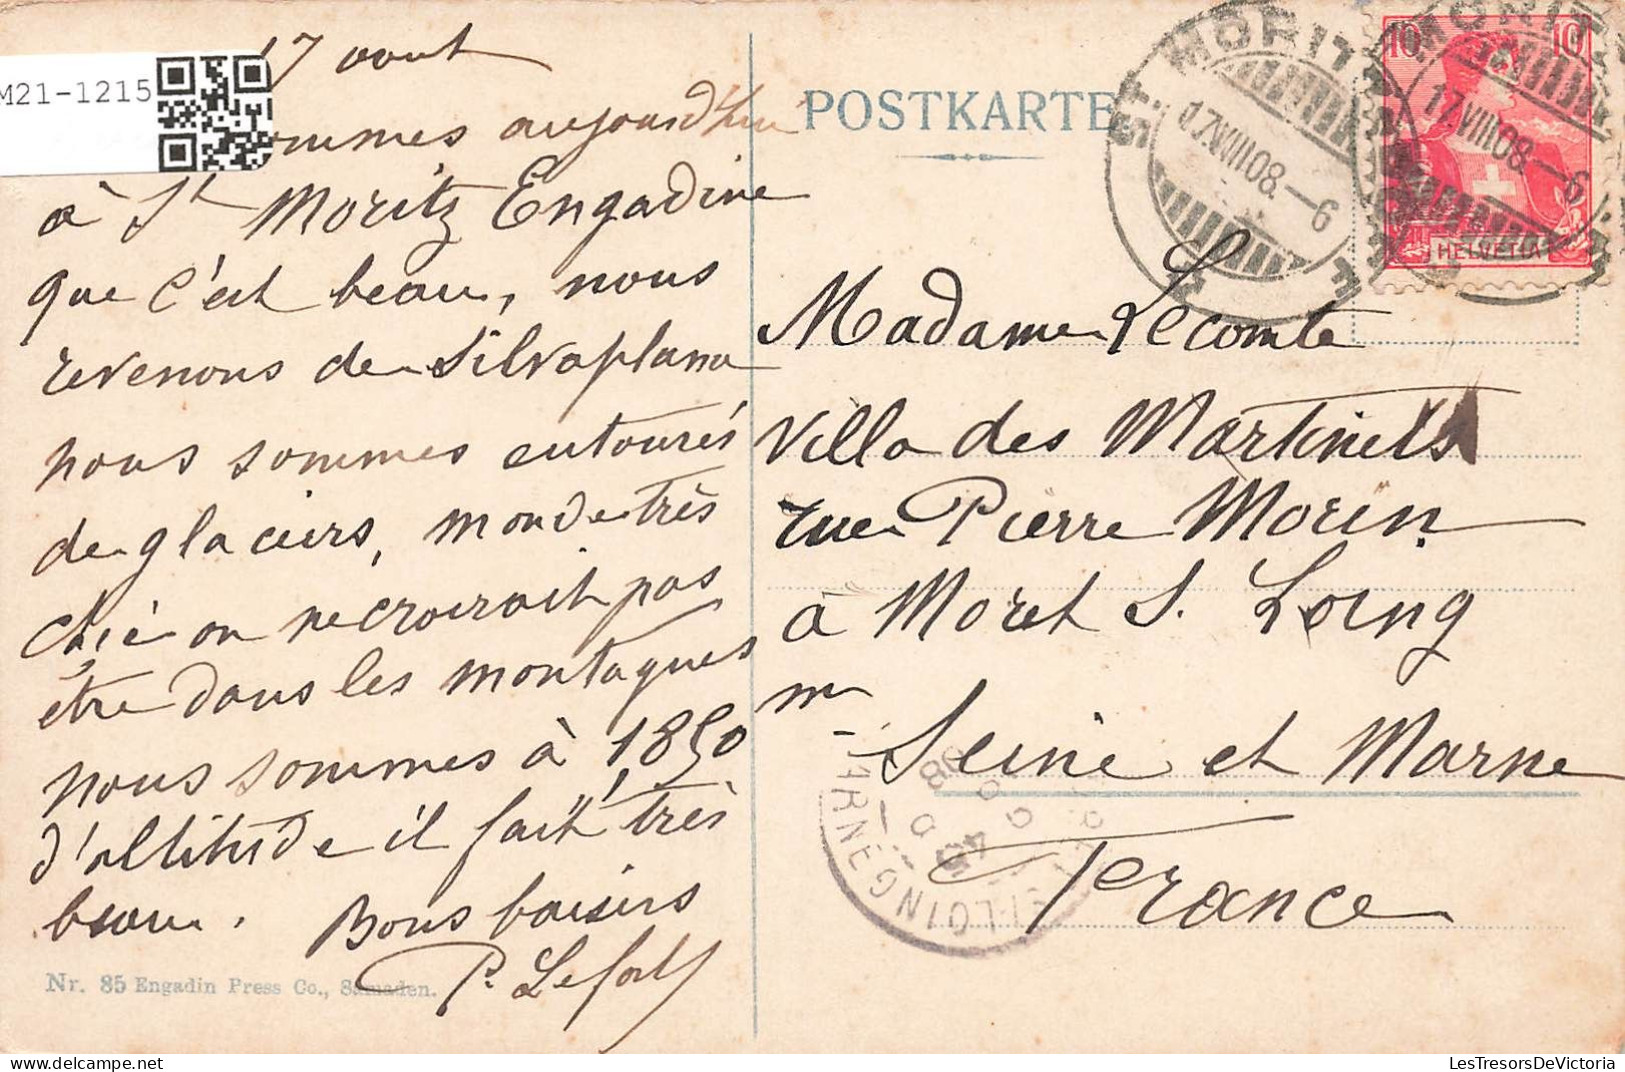 M21-1215
17 aout
sommes aujourd'hui
à St Moritz Engadine
que c'est beau, nous
revenons de Silvaplana
nous sommes entourés
de glaciers, monde très
chic on ne croirait pas
être dans les montagnes
nous sommes à 1850
d'altitude il fait très
beau. Bons baisers
P. Lefort
Nr. 85 Engadin Press Co., Samaden.
POSTKARTE
ST. MORITZ
17.VIII.08.–6
10 10
HELVETIA
ST. MORITZ
17.VIII.08.–6
Madame Lecomte
Villa des Martinets
rue Pierre Morin
à Moret s. Loing
Seine et Marne
France
LesTresorsDeVictoria